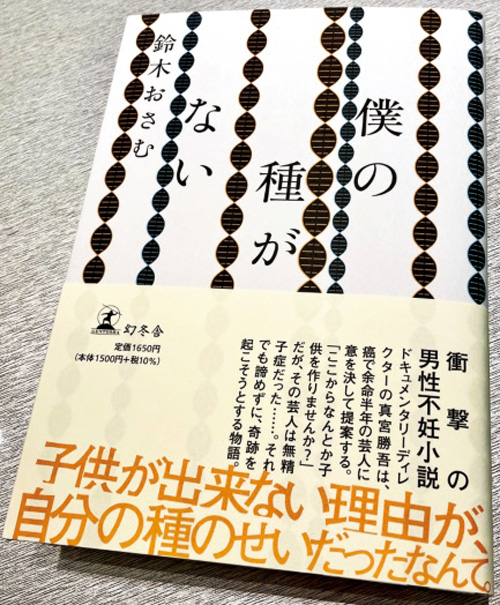 僕の
種が
ない
鈴木おさむ
衝撃の
男性不妊小説
ドキュメンタリーディレ
クターの真宮勝吾は、
癌で余命半年の芸人に
意を決して提案する。
「ここからなんとか子
供を作りませんか?」
だが、その芸人は無精
子症だった……。それ
でも諦めずに、奇跡を
起こそうとする物語。
GENTOSHA
幻冬舎
定価1650円
(本体1500円+税10%)
子供が出来ない理由が、
自分の種のせいだったなんて。